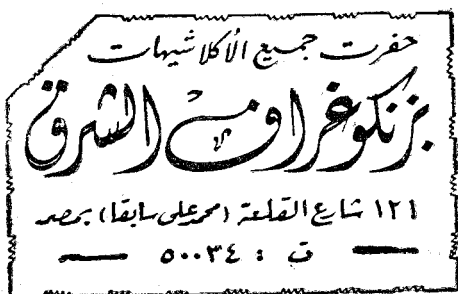 حفرت جميع الأكلاشيهات
بزنكوغراف الشرق
١٢١ شارع القلعة (محمد على سابقا) بمصر
ت : ٥٠٠٣٤